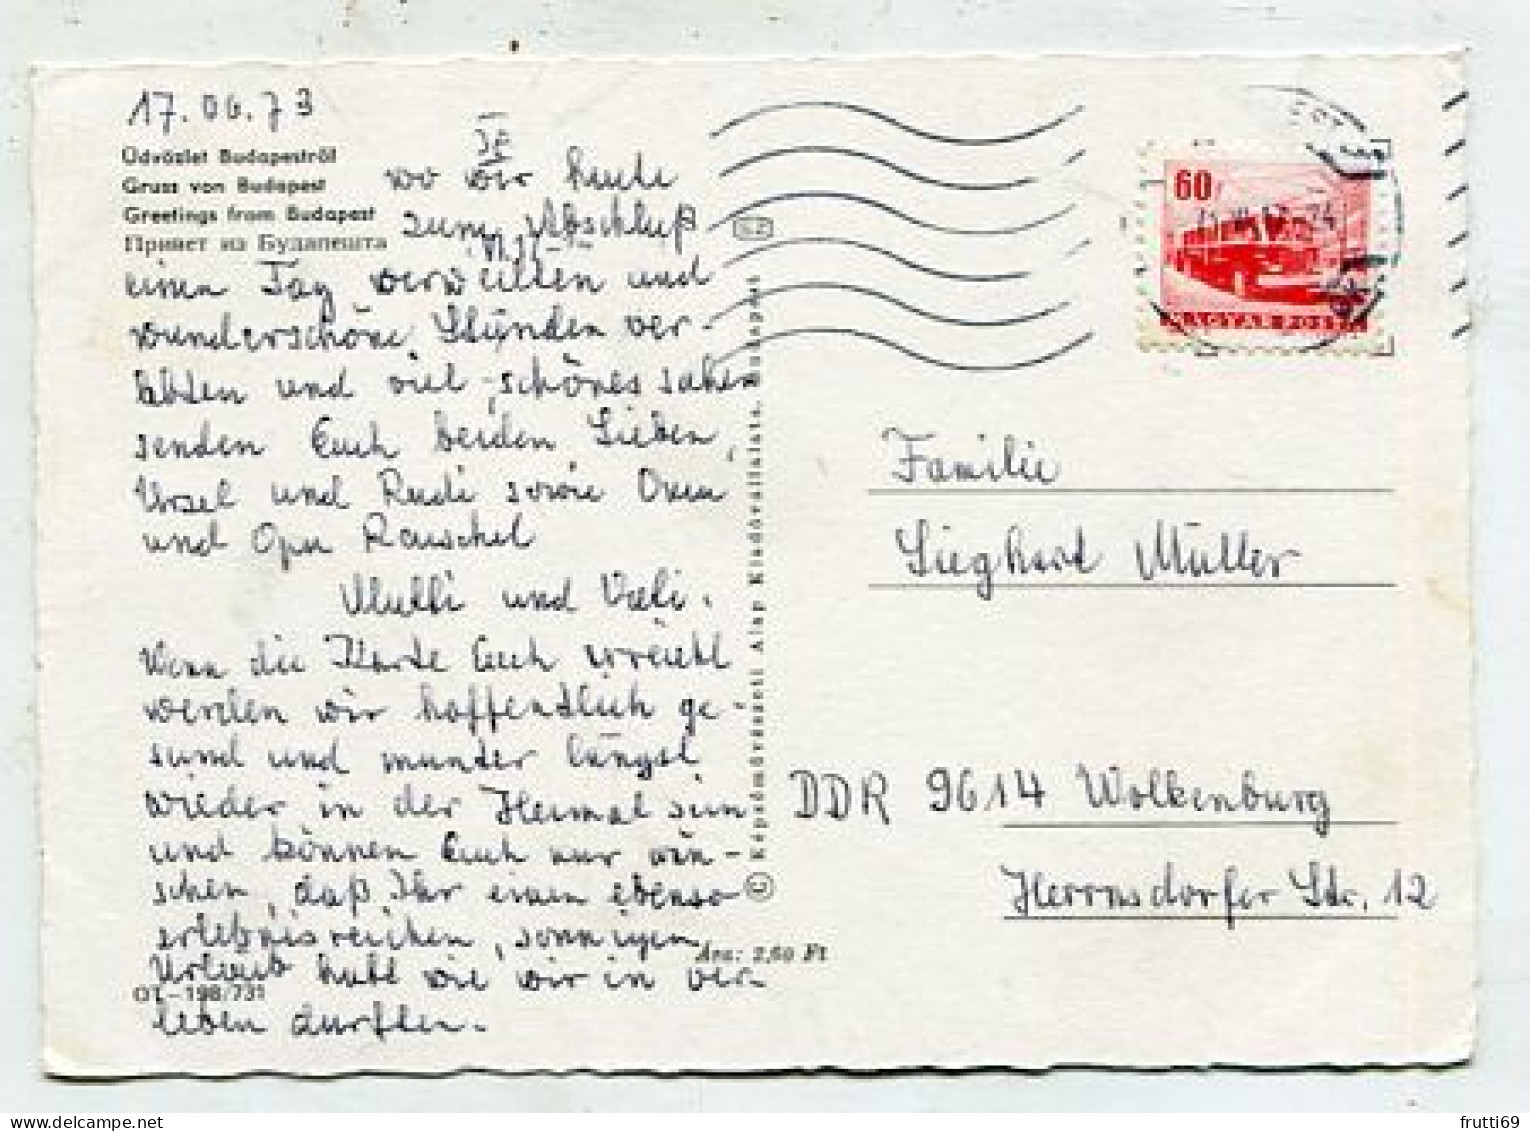 17.06.73
Üdvözlet Budapestről
Gruss von Budapest
Greetings from Budapest
Привет из Будапешта
wo wir heute
zum Abschluß
einen Tag verweilten und
wunderschöne Stunden ver-
lebten und viel schönes sahen
senden Euch beiden Lieben,
Ursel und Rudi sowie Oma
und Opa Rauschel
Mutti und Vati.
Wenn die Karte Euch erreicht
werden wir hoffentlich ge-
sund und munter längst
wieder in der Heimat sein
und können Euch nur wün-
schen, daß Ihr einen ebenso
erlebnisreichen, sonnigen
Urlaub habt wie wir in ver-
leben durften.
OT-198/731
Ára: 2,60 Ft
© Képzőművészeti Alap Kiadóvállalata, Budapest
SZ
60f
MAGYAR POSTA
Familie
Sieghard Müller
DDR 9614 Wolkenburg
Herrnsdorfer Str. 12
frutti69